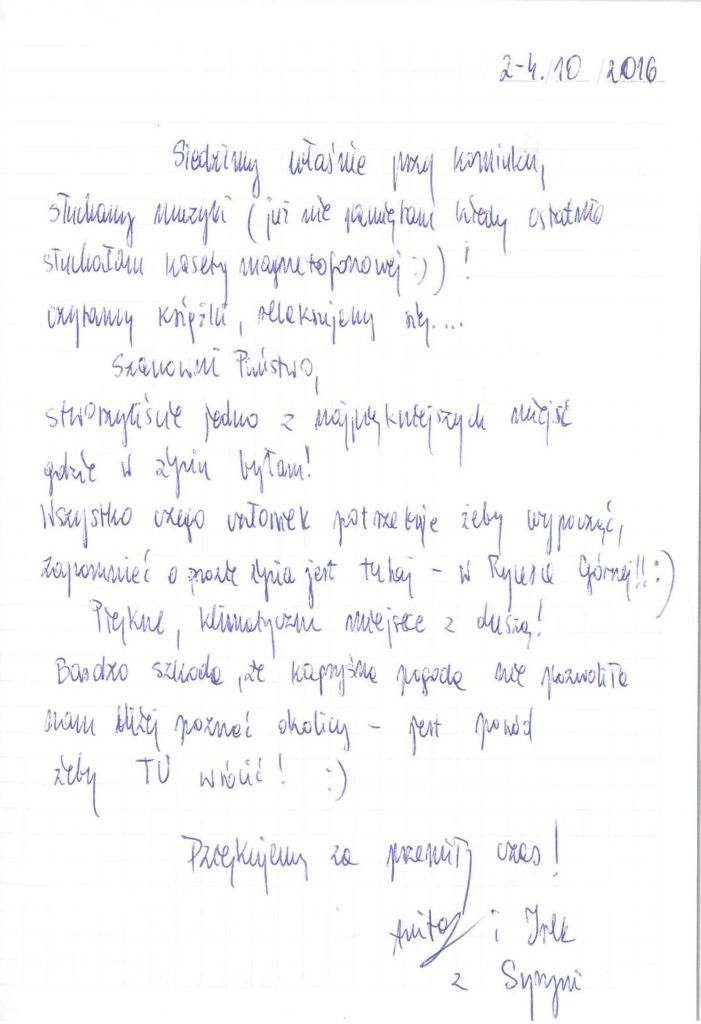 2-4./10/2016
Siedzimy właśnie przy kominku,
słuchamy muzyki (już nie pamiętam kiedy ostatnio
słuchałam kasety magnetofonowej :))!
czytamy książki, relaksujemy się....
Szanowni Państwo,
stworzyliście jedno z najpiękniejszych miejsc
gdzie w życiu byłam!
Wszystko czego człowiek potrzebuje żeby wypocząć,
zapomnieć o prozie życia jest tutaj - w Rycerce Górnej!! :)
Piękne, klimatyczne miejsce z duszą!
Bardzo szkoda, że kapryśna pogoda nie pozwoliła
nam bliżej poznać okolicy - jest powód
żeby TU wrócić! :)
Dziękujemy za przemiły czas!
Anita i Irek
z Syryni